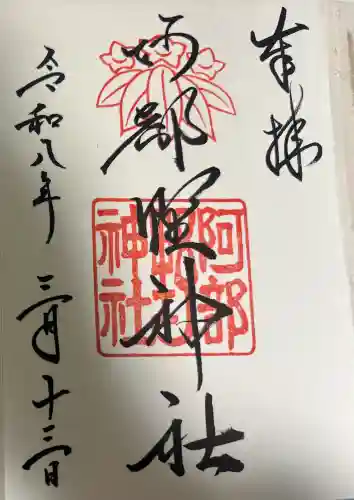 奉拝
阿部野神社
令和八年 三月十三日
阿部野神社